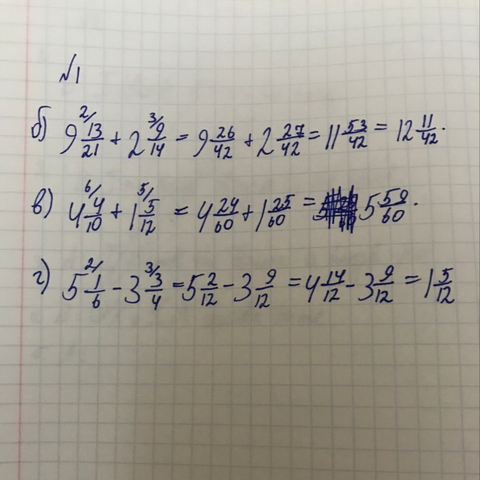 №1
б) 9 13/21 + 2 9/14 = 9 26/42 + 2 27/42 = 11 53/42 = 12 11/42.
в) 4 4/10 + 1 5/12 = 4 24/60 + 1 25/60 = 5 59/60.
г) 5 1/6 - 3 3/4 = 5 2/12 - 3 9/12 = 4 14/12 - 3 9/12 = 1 5/12